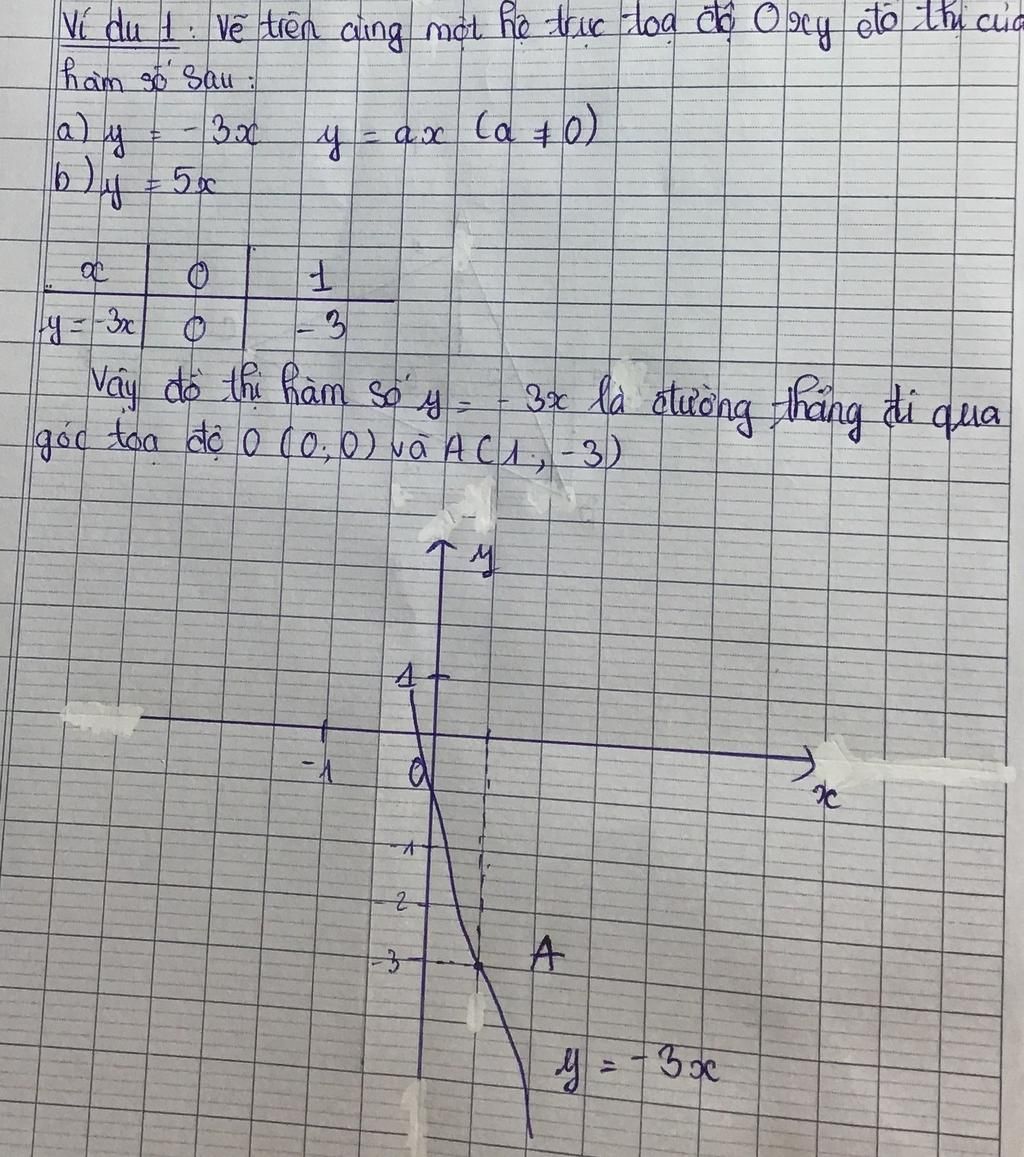 Ví dụ 1: Vẽ trên cùng một hệ trục toạ độ Oxy đồ thị của
hàm số sau:
a) y = -3x y = ax (a ≠ 0)
b) y = 5x
x 0 1
y = -3x 0 -3
Vậy đồ thị hàm số y = -3x là đường thẳng đi qua
gốc tọa độ O (0;0) và A (1; -3)
y
1
-1
O
x
-1
-2
-3
A
y = -3x